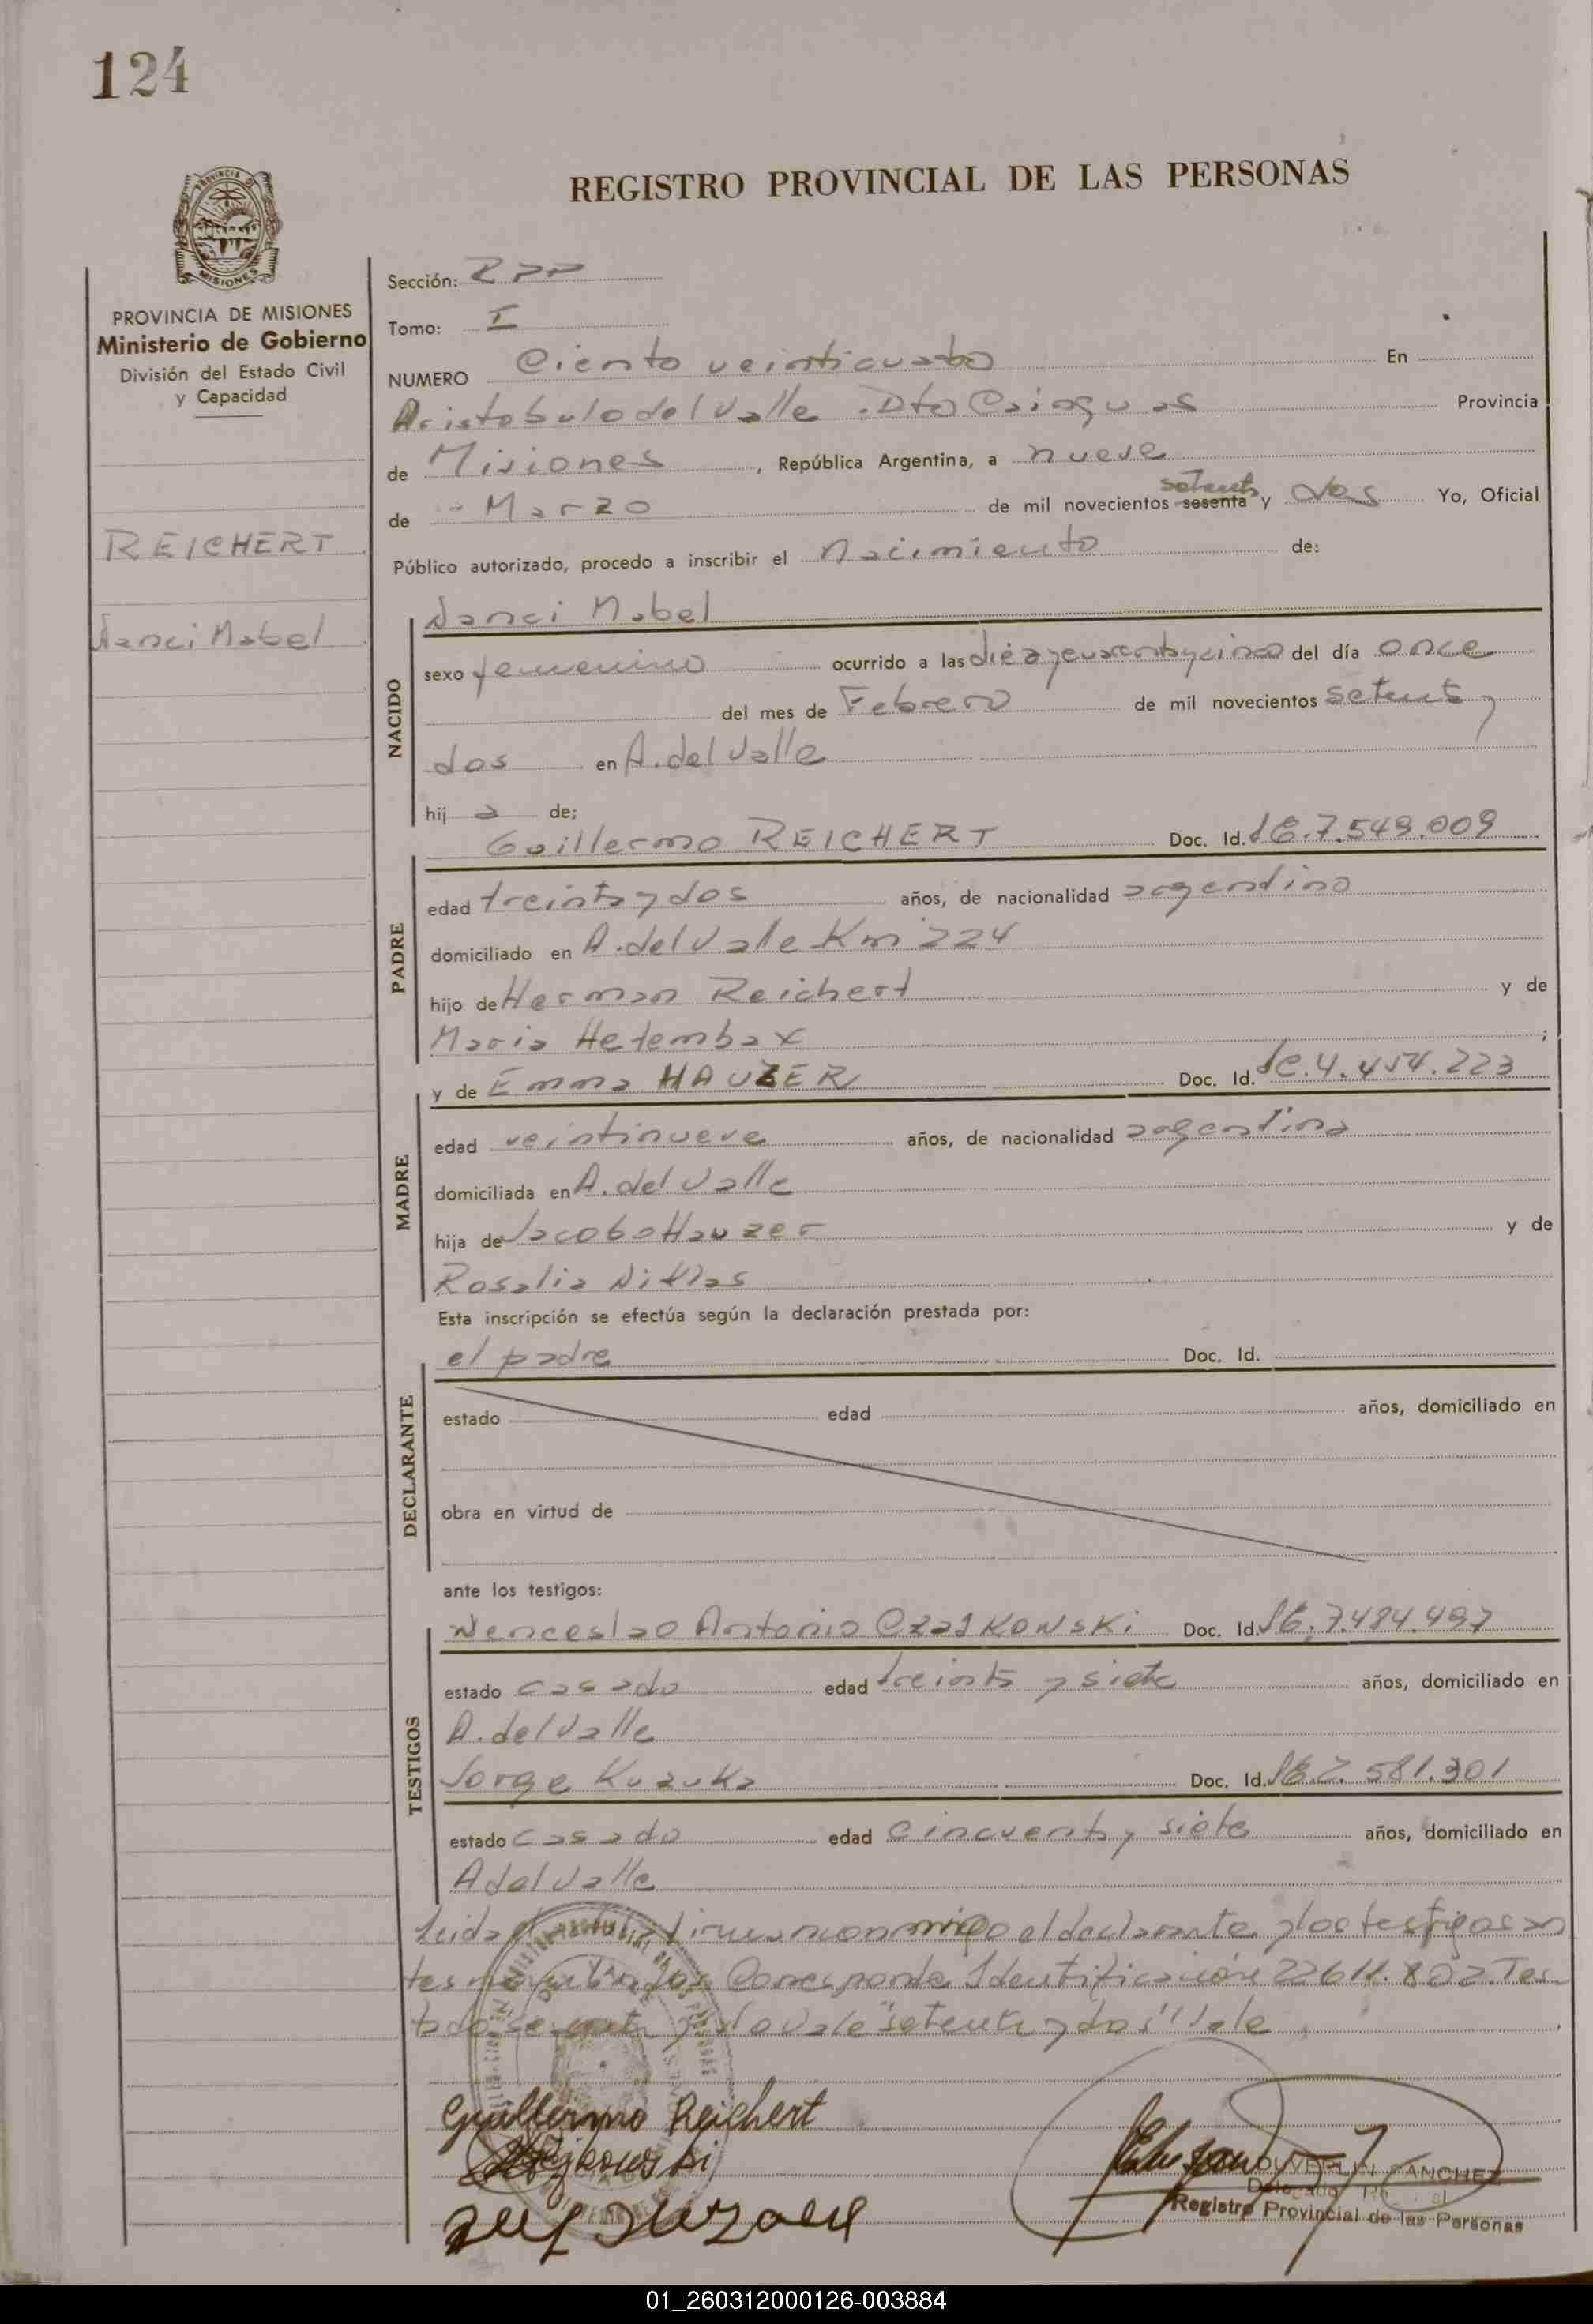 124
REGISTRO PROVINCIAL DE LAS PERSONAS
PROVINCIA DE MISIONES
Ministerio de Gobierno
División del Estado Civil
y Capacidad
REICHERT
Nanci Mabel
Sección: RPP
Tomo: I
NUMERO Ciento veinticuatro En
Aristobulo del Valle . Dto Cainguas Provincia
de Misiones , República Argentina, a nueve
de Marzo de mil novecientos sesenta setenta y dos Yo, Oficial
Público autorizado, procedo a inscribir el nacimiento de:
NACIDO
Nanci Mabel
sexo femenino ocurrido a las diez y cuarenta y cinco del día once
del mes de Febrero de mil novecientos setenta y
dos en A. del Valle
hij a de;
PADRE
Guillermo REICHERT Doc. Id. 7.549.009
edad treinta y dos años, de nacionalidad argentino
domiciliado en A. del Valle Km 224
hijo de Herman Reichert y de
Maria Hetembax ;
MADRE
y de Emma HAUZER Doc. Id. 4.454.223
edad veintinueve años, de nacionalidad argentina
domiciliada en A. del Valle
hija de Jacobo Hauzer y de
Rosalia Niklas
Esta inscripción se efectúa según la declaración prestada por:
DECLARANTE
el padre Doc. Id.
estado edad años, domiciliado en
obra en virtud de
ante los testigos:
TESTIGOS
Wenceslao Antonio Doc. Id. 7.484.497
estado casado edad treinta y siete años, domiciliado en
A. del Valle
Jorge Kuzuka Doc. Id. 581.301
estado casado edad cincuenta y siete años, domiciliado en
A del Valle
Leida el firman conmigo el declarante y los testigos an
tes Corresponde Identificación 22611.802. Tes-
tado no vale "setenta y dos" Vale
Guillermo Reichert
SANCHEZ
Registro Provincial de las Personas
01_260312000126-003884